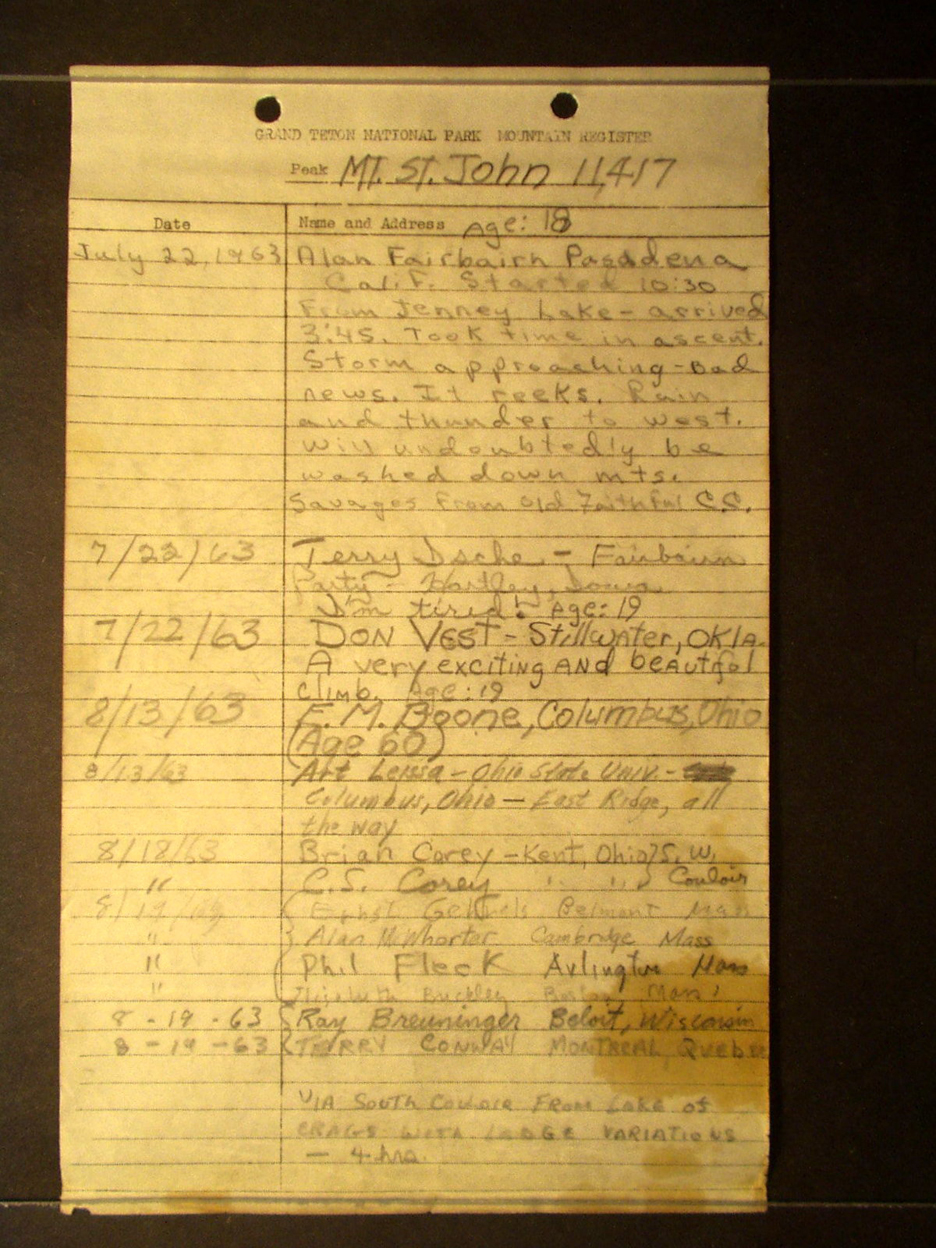 GRAND TETON NATIONAL PARK MOUNTAIN REGISTER
Peak MT. ST. John 11,417
Date Name and Address Age: 18
July 22, 1963 Alan Fairbairn Pasadena
Calif. Started 10:30
From Jenney Lake - arrived
3:45. Took time in ascent.
Storm approaching - Bad
news. It reeks. Rain
and thunder to west.
Will undoubtedly be
washed down mts.
Savages From Old Faithful C.C.
7/22/63 Terry - Fairbairn
Party - Hartley, Iowa
I'm tired! Age: 19
7/22/63 DON VEST - Stillwater, OKLA.
A very exciting AND beautiful
climb. Age: 19
8/13/63 E. M. Boone, Columbus, Ohio
(Age 60)
8/13/63 Art Leissa - Ohio State Univ. -
Columbus, Ohio - East Ridge, all
the way
8/18/63 Brian Corey - Kent, Ohio } S.W.
" C.S. Corey " " } Couloir
8/19/63 { Ernst Belmont Mass
" Alan McWhorter Cambridge Mass
" Phil Fleck Arlington Mass
" Elizabeth Buckley Boston Mass
8-19-63 { Ray Breuninger Beloit, Wisconsin
8-19-63 { TERRY CONWAY MONTREAL Quebec
VIA SOUTH COULOIR FROM LAKE OF
CRAGS WITH LEDGE VARIATIONS
— 4 hrs.